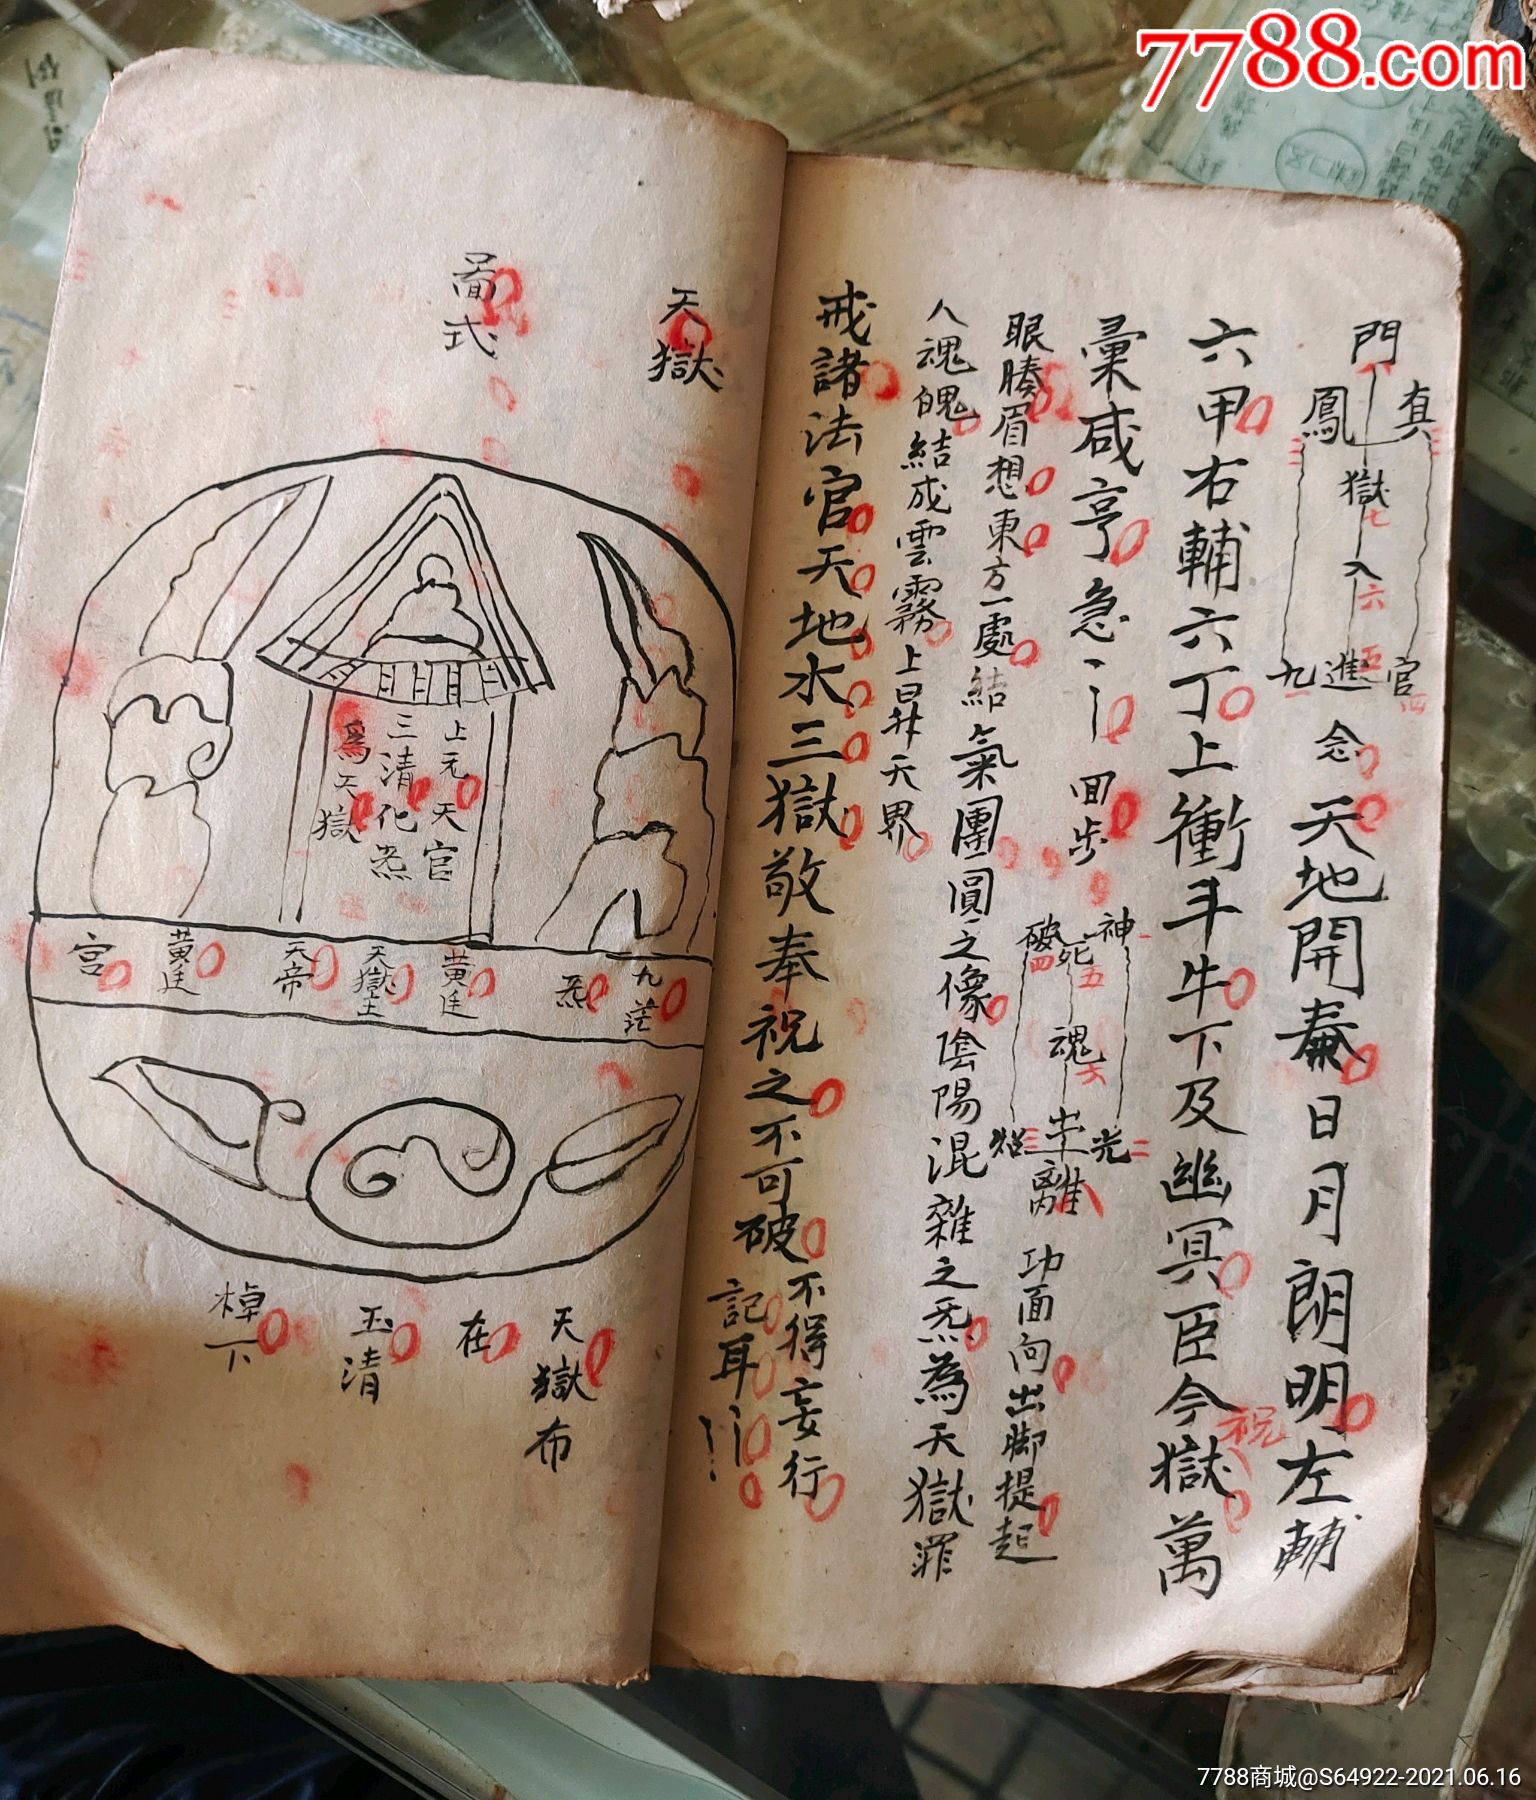 7788.com
門
真
鳳
獄七
入六
五
九一進官四
念天地開泰日月朗明左輔
六甲右輔六丁上衝斗牛下及幽冥臣今獄祝萬
彙咸亨急
回步
神一
破四
死五
魂六
光二
三
離八
功面向出脚提起
眼腠眉想東方一處結氣團圓之像陰陽混雜之炁為天獄罪
人魂魄結成雲霧上昇天界
戒諸法官天地水三獄敬奉祝之不可破不得妄行
記耳
天獄
啚式
上元天官
三清化炁
爲天獄
九茫
炁
黄廷
天獄主
天帝
黄廷
宫
天獄布
在
玉清
棹下
7788商城@S64922-2021.06.16